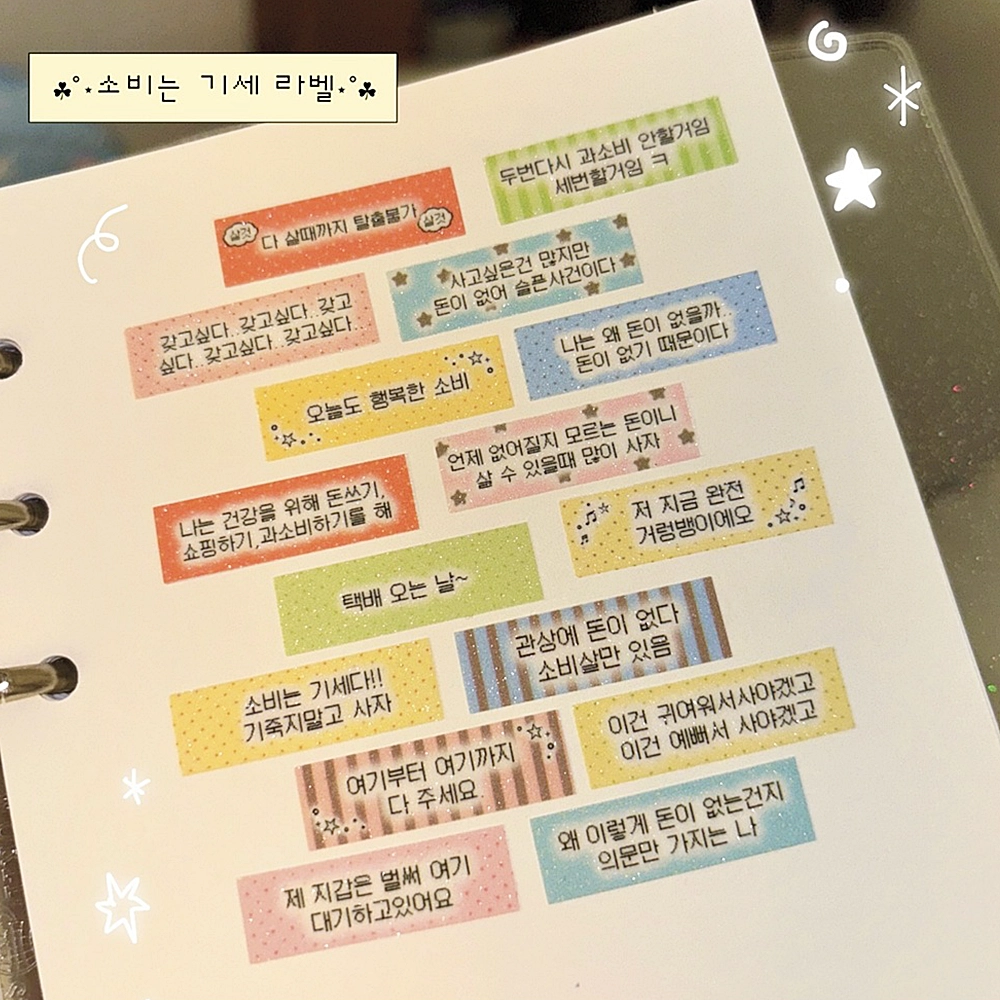 ☘˚⋆소비는 기세 라벨⋆˚☘
두번다시 과소비 안할거임
세번할거임 ㅋ
살것 다 살때까지 탈출불가 살것
사고싶은건 많지만
돈이 없어 슬픈사건이다
갖고싶다..갖고싶다..갖고
싶다..갖고싶다. 갖고싶다..
나는 왜 돈이 없을까..
돈이 없기 때문이다
오늘도 행복한 소비
언제 없어질지 모르는 돈이니
살 수 있을때 많이 사자
나는 건강을 위해 돈쓰기,
쇼핑하기,과소비하기를 해
저 지금 완전
거렁뱅이에오
택배 오는 날~
관상에 돈이 없다
소비살만 있음
소비는 기세다!!
기죽지말고 사자
이건 귀여워서사야겠고
이건 예뻐서 사야겠고
여기부터 여기까지
다 주세요.
왜 이렇게 돈이 없는건지
의문만 가지는 나
제 지갑은 벌써 여기
대기하고있어요